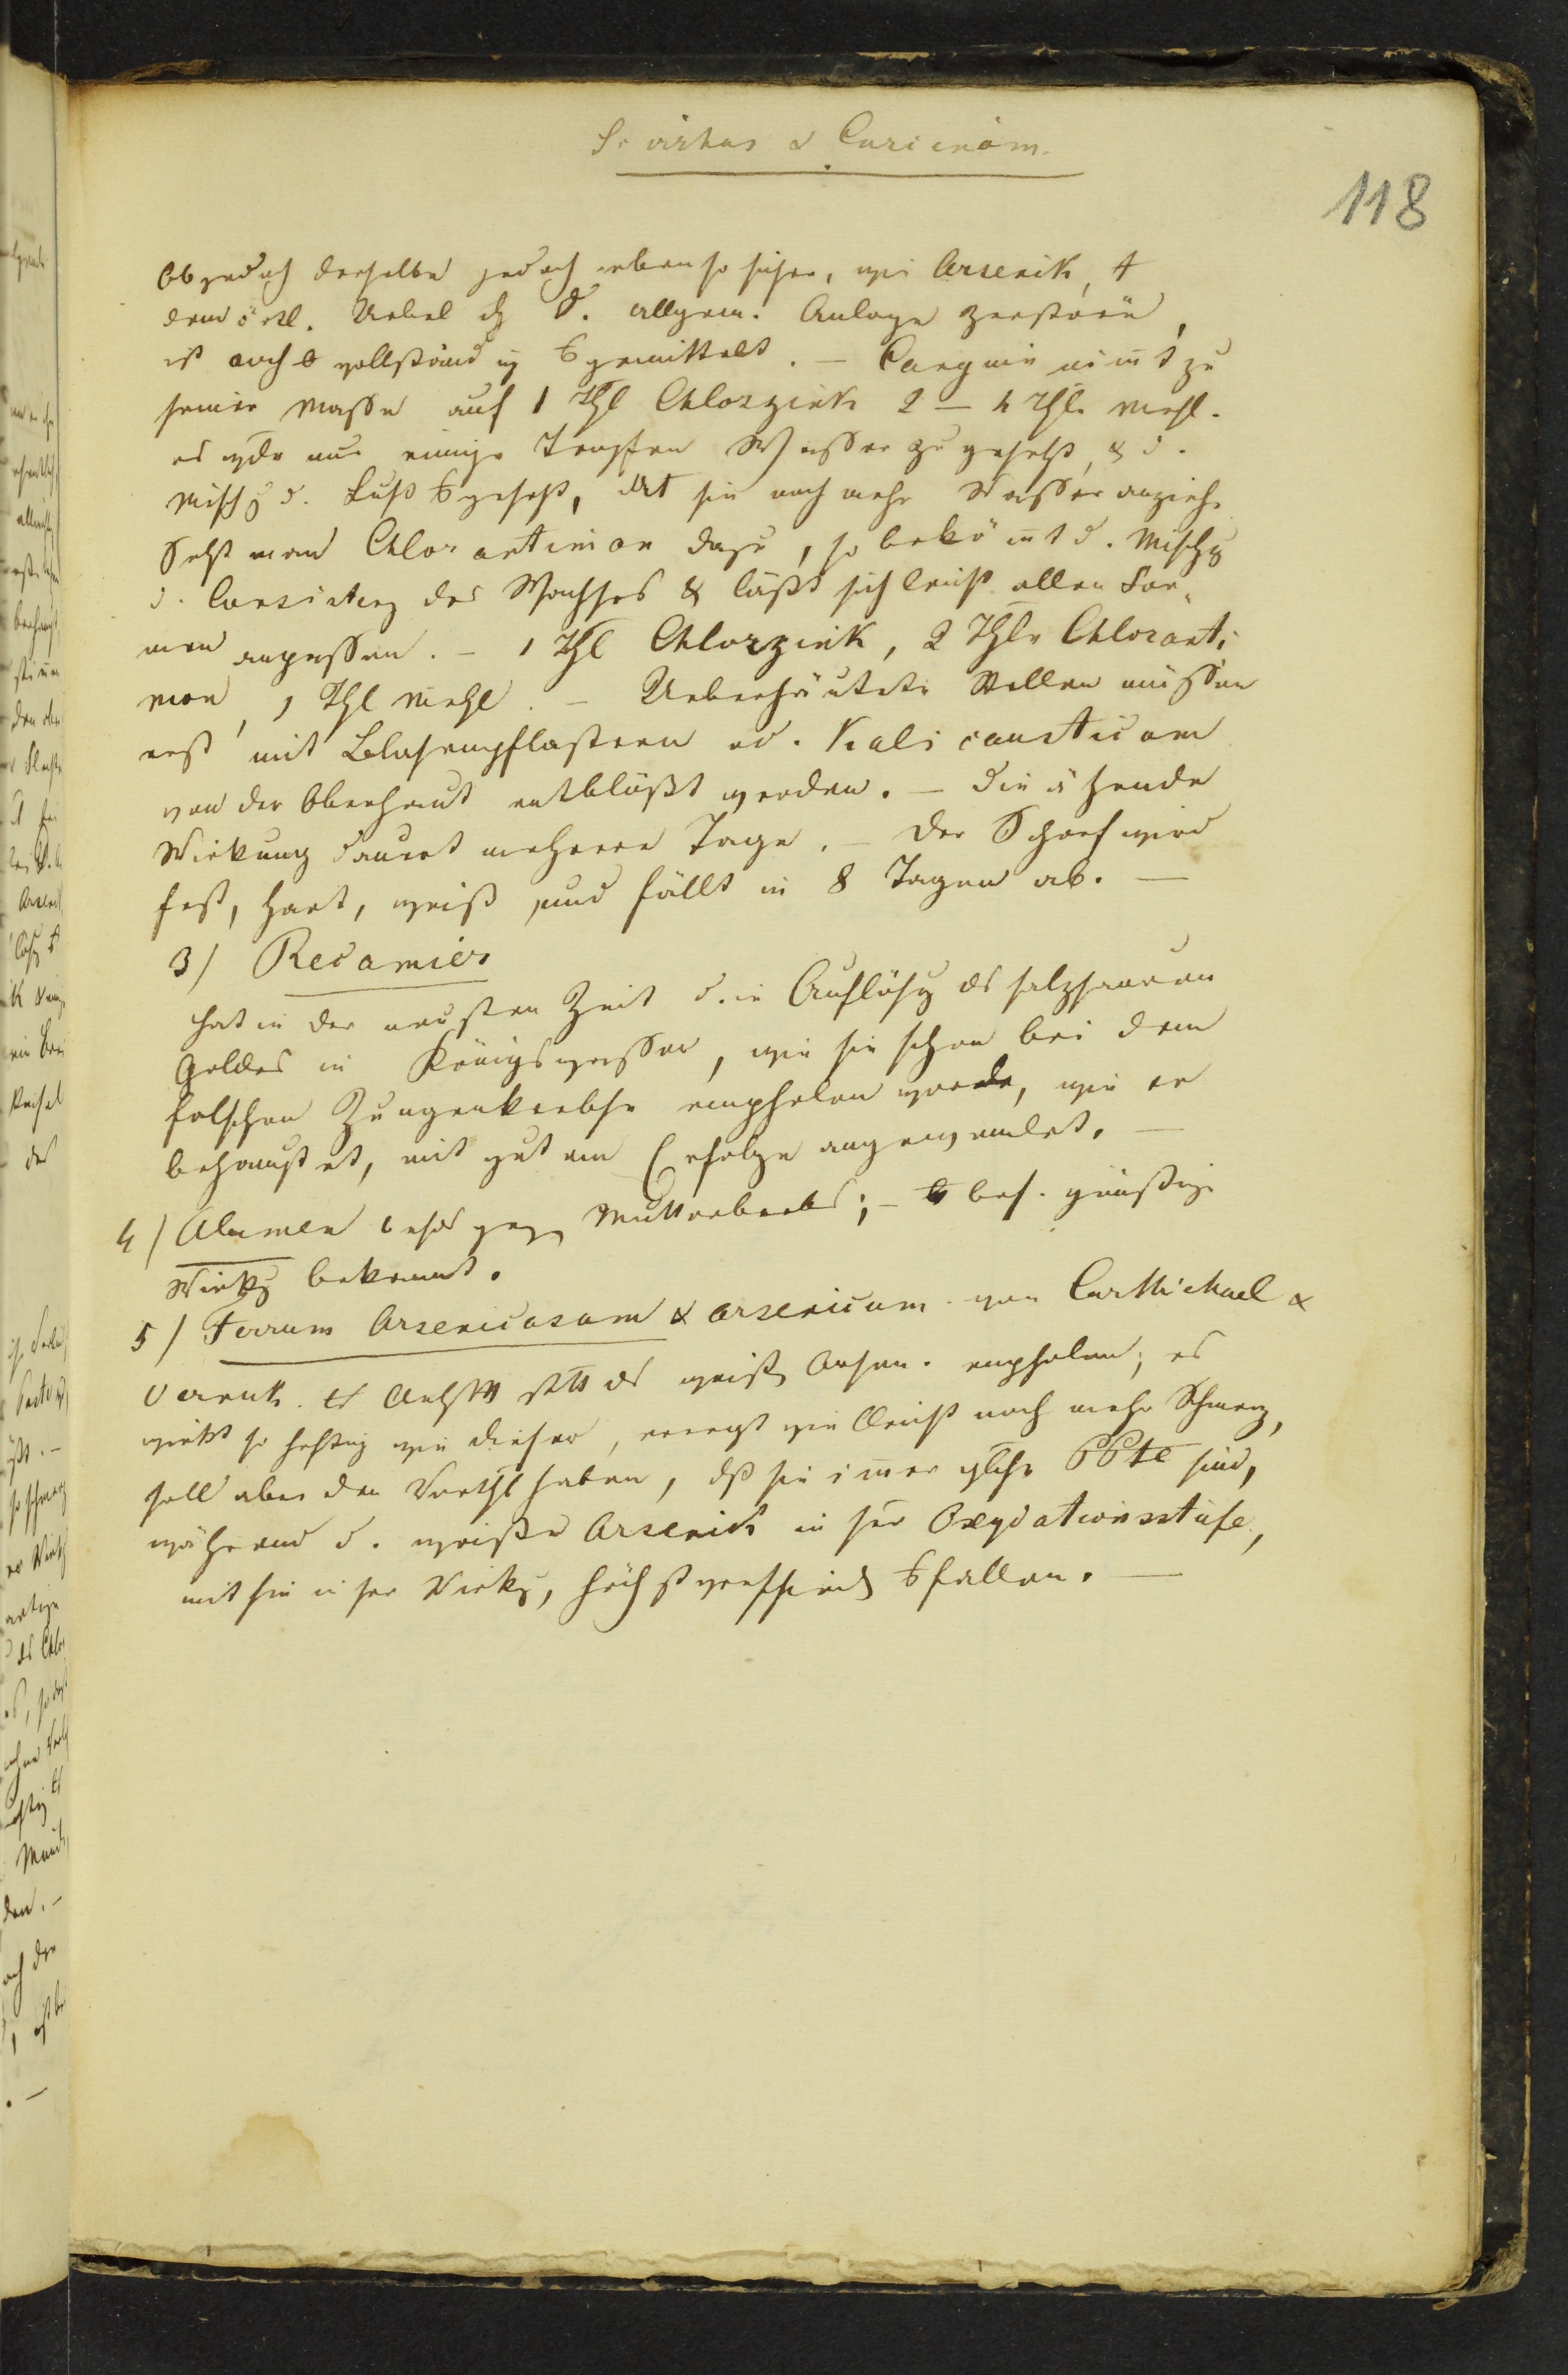 Scirrhus & Carcinom.
118
Ob jedoch derselbe jedoch ebenso sicher, wie Arsenik,
dem örtl. Uebel d. allgem. Anlage zerstöre,
ist noch vollständig gemittelt. – Canquoin nimt zu
seiner Masse auf 1 Thl Chlorzink 2 – 4 Thle Mehl.
es wde nur einige Tropfen Wasser zugesetzt, & d.
Mischg d. Luft gesetzt, sie noch mehr Wasser anziehe
Setzt man Chlorantimon dazu, so bekömt d. Mischg
d. Consistenz des Wachses & läßt sich leicht allen For„
men anpassen. – 1 Thl Chlorzink, 2 Thle Chloranti
mon, 1 Thl Mehl. – Ueberhäutete Stellen müssen
erst mit Blasenpflastern od. Kali causticam
von der Oberhaut entblößt werden. – Die ätzende
Wirkung dauert mehrere Tage. – Der Schorf wird
fest, hart, weiß und fällt in 8 Tagen ab. –
3) Recamier
hat in der neusten Zeit die Auflösg ds salzsauren
Goldes in Königswasser, wie sie schon bei dem
falschen Zungenkrebse empfolen worde, wie er
behauptet, mit gutem Erfolge angewendet. –
4) Alumen gegen Mutterkrebs; – bes. günstige
Wirkg bekannt.
5) Ferrum Arsenicosam & arsenicum von CarMichael &
statt ds weiß Arsen. empfolen; es
wirkt so heftig wie dieser, erregt vielleicht noch mehr Schmerz,
soll aber den Vorthl haben, dß sie immer gleiche PPte sind,
während d. weiße Arsenik in sr Oxydationsstufe,
mithin in sr Wirkg, höchst verschieden fallen. –